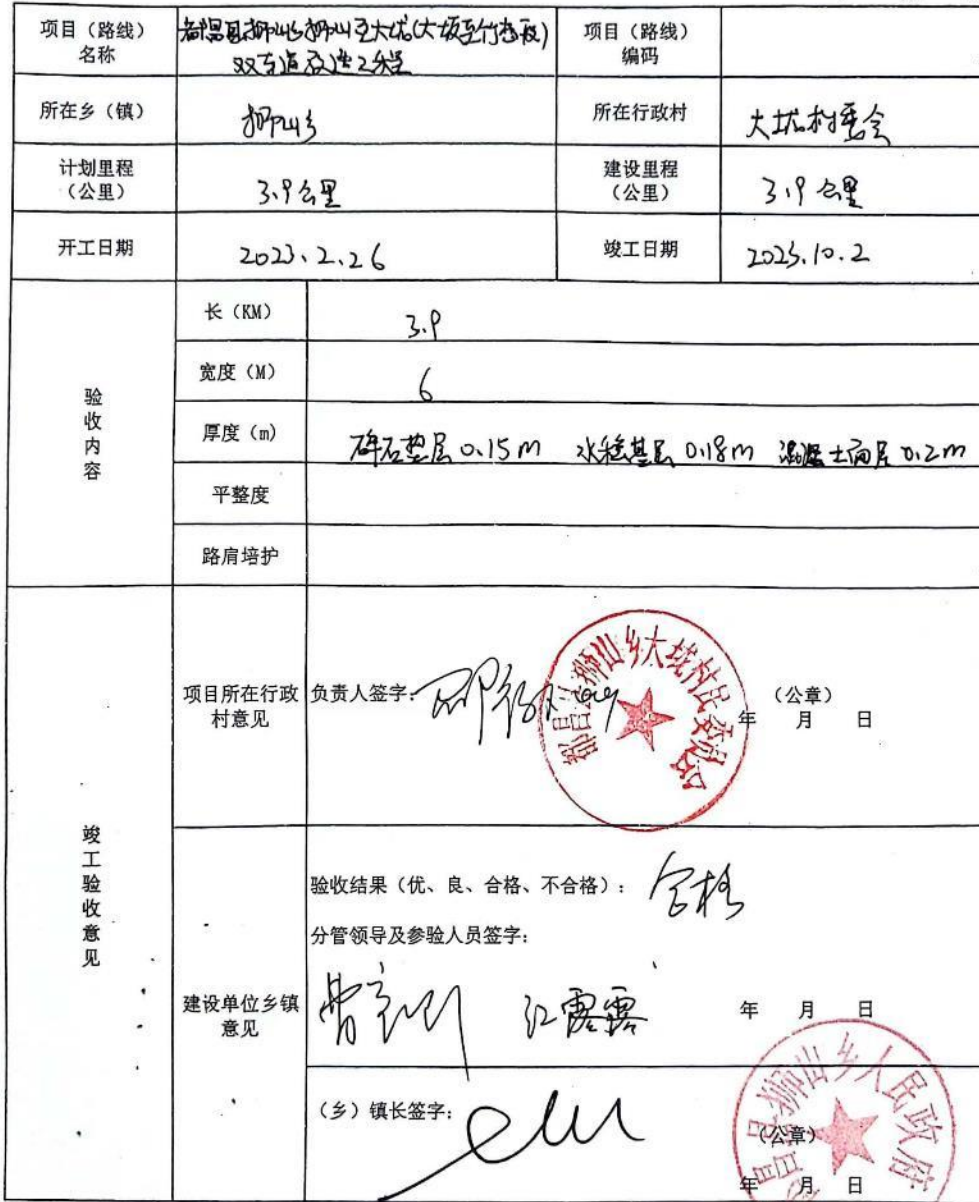 项目（路线）名称 都昌县狮山乡狮山至大垅(大垅至竹峦段)双车道改造工程 项目（路线）编码
所在乡（镇） 狮山乡 所在行政村 大垅村委会
计划里程（公里） 3.9公里 建设里程（公里） 3.9公里
开工日期 2023.2.26 竣工日期 2023.10.2
验收内容
长（KM） 3.9
宽度（M） 6
厚度（m） 碎石垫层0.15m 水稳基层0.18m 混凝土面层0.2m
平整度
路肩培护
竣工验收意见
项目所在行政村意见 负责人签字： （公章）
年 月 日
都昌县狮山乡大垅村民委员会
建设单位乡镇意见
验收结果（优、良、合格、不合格）： 合格
分管领导及参验人员签字：
江露露 年 月 日
（乡）镇长签字：
（公章）
年 月 日
都昌县狮山乡人民政府